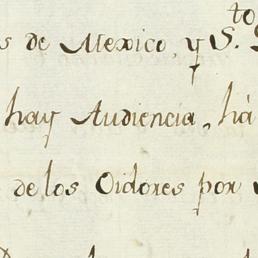 s de Mexico, y S.to
hay Audiencia, há
de los Oidores por